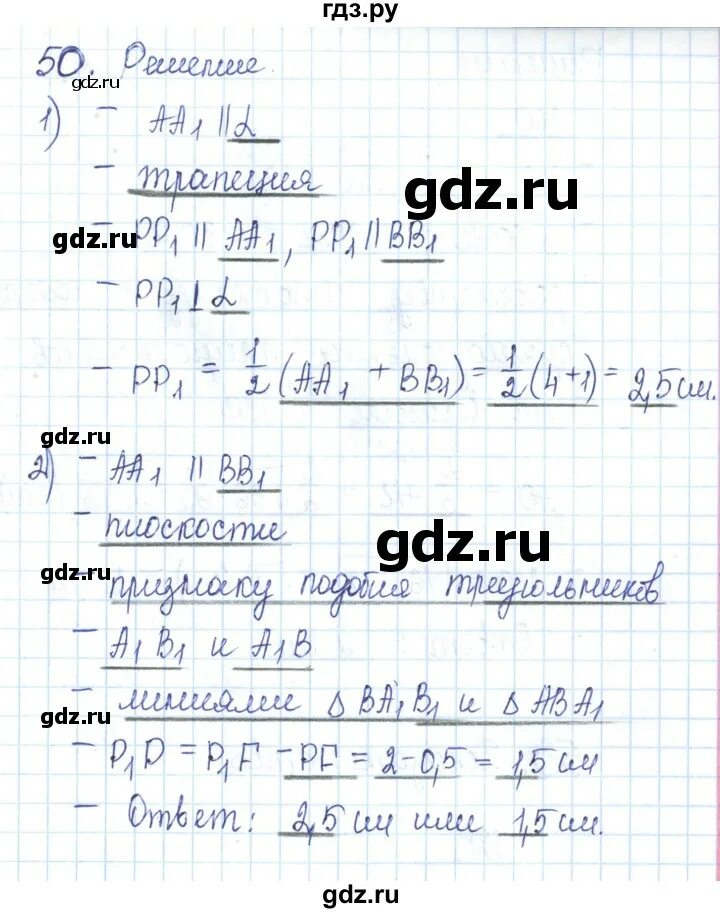 гдз.ру
50. Решение.
gdz.ru
1) - AA₁ || α
- трапеция
gdz.ru
gdz.ru
- PP₁ || AA₁, PP₁ || BB₁
- PP₁ ⊥ α
- PP₁ = 1/2 (AA₁ + BB₁) = 1/2 (4+1) = 2,5 см.
gdz.ru
2) - AA₁ || BB₁
- плоскости
gdz.ru
gdz.ru
признаку подобия треугольников
- A₁B₁ и A₁B
- линиями Δ BA₁B₁ и Δ ABA₁
gdz.ru
- P₁P = P₁F - PF = 2-0,5 = 1,5 см
- Ответ: 2,5 см или 1,5 см.
gdz.ru
gdz.ru